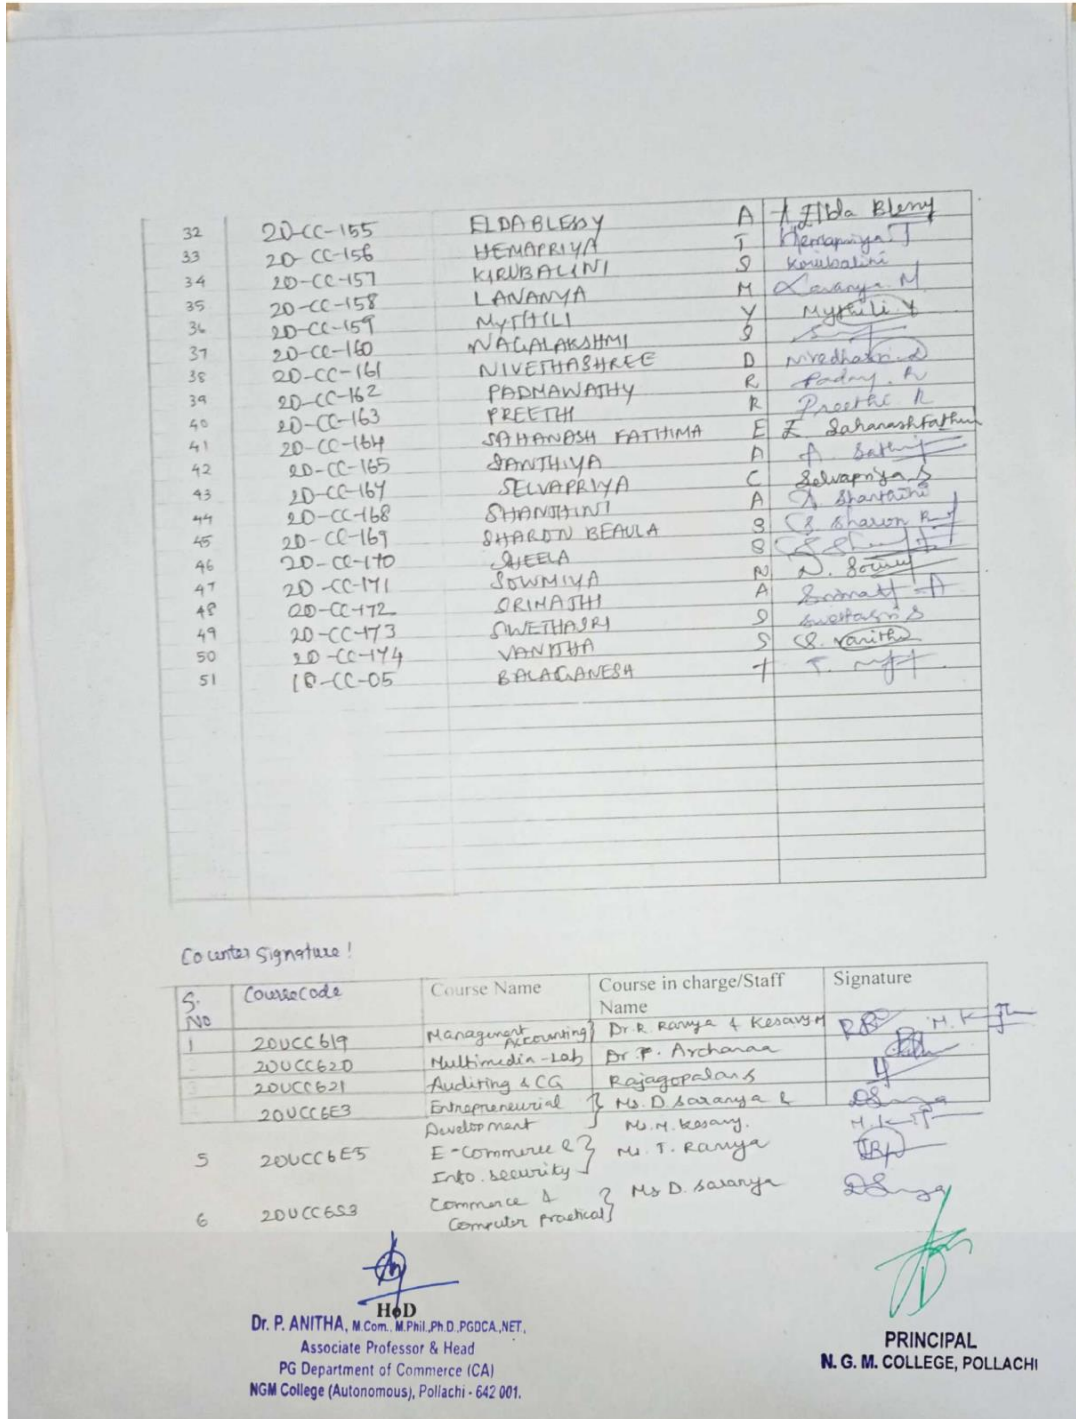 32 20-CC-155 ELDABLESSY A Elda Blessy
33 20-CC-156 HEMAPRIYA T Hemapriya T
34 20-CC-157 KIRUBALINI S Kirubalini
35 20-CC-158 LANANYA M Lavanya. M
36 20-CC-159 MYTHILI Y Mythili. Y
37 20-CC-160 NAGALAKSHMI S
38 20-CC-161 NIVETHASHREE D
39 20-CC-162 PADMAWATHY R Padmy. R
40 20-CC-163 PREETHI R Preethi R
41 20-CC-164 SAHANASH FATHIMA E E
42 20-CC-165 SANTHIYA A A.
43 20-CC-167 SELVAPRIYA C Selvapriya S
44 20-CC-168 SHANTHINI A A Shanthini
45 20-CC-169 SHARON BEAULA S S Sharon
46 20-CC-170 SHEELA S
47 20-CC-171 SOWMIYA N N.
48 20-CC-172 SRIMATHI A
49 20-CC-173 SWETHASRI S Swethasri S
50 20-CC-174 VANITHA S S. Vanitha
51 18-CC-05 BALAGANESH T T.
Counter Signature!
S. No Course Code Course Name Course in charge/Staff Name Signature
1 20UCC619 Management Accounting} Dr. R. Ramya & Kesavy M
20UCC620 Multimedia-Lab Dr. P. Archanaa
20UCC621 Auditing & CG Rajagopalan S
20UCC6E3 Entrepreneurial Development } Ms. D Saranya & Ms. M. Kesavy.
5 20UCC6E5 E-Commerce & Info. security } Ms. T. Ramya
6 20UCC6S3 Commerce & Computer Practical } Ms D. Saranya
HOD
Dr. P. ANITHA, M.Com., M.Phil.,Ph.D.,PGDCA.,NET.,
Associate Professor & Head
PG Department of Commerce (CA)
NGM College (Autonomous), Pollachi - 642 001.
PRINCIPAL
N. G. M. COLLEGE, POLLACHI